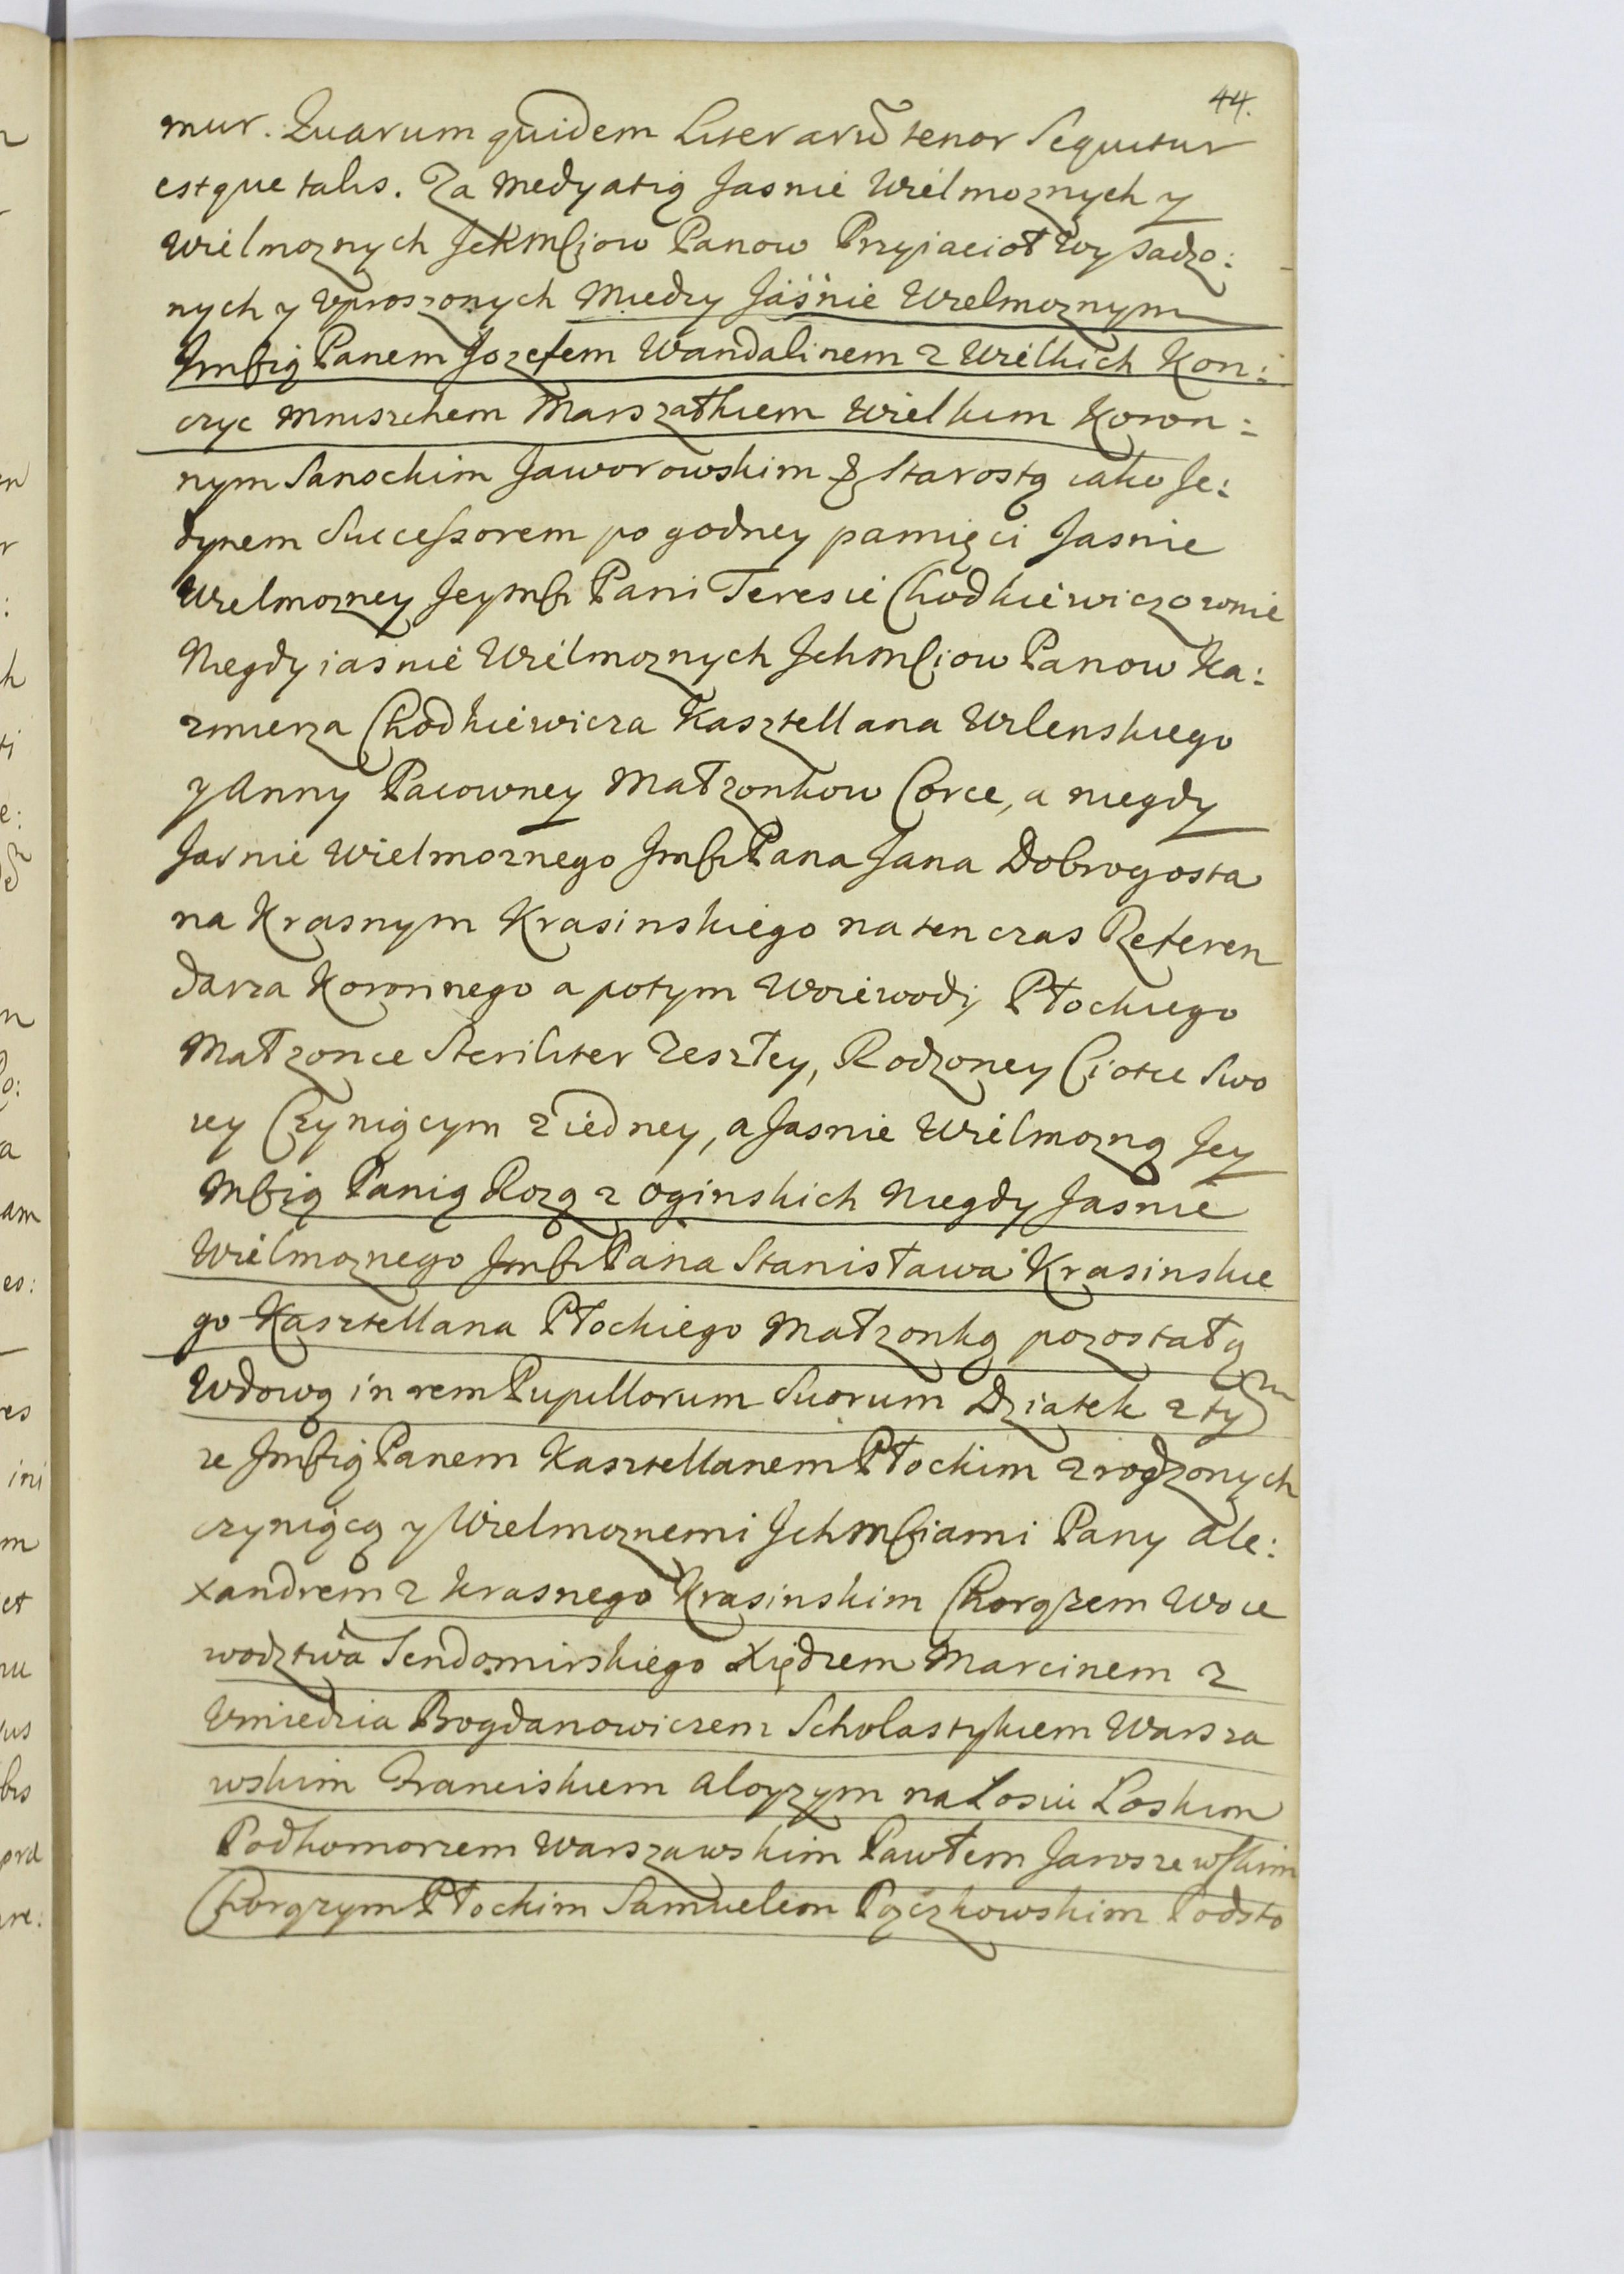 44.
mur. Quarum quidem Literarũ tenor Sequitur
estque talis. Za Medyatią Jasnie Wielmoznych y
Wielmoznych Jchmściow Panow Przyiacioł Wysadzo:
nych y Uproszonych Miedzy Jaśnie Wielmoznym
Jmścią Panem Jozefem Wandalinem z Wielkich Kon:
czyc Mniszchem Marszałkiem Wielkim Koron:
nym Sanockim Jaworowskim & Starostą iako Je:
dynem Successorem po godney pamięci Jasnie
Wielmozney Jeymści Pani Teresie Chodkiewiczownie
Niegdy iasnie Wielmoznych Jchmściow Panow Ka:
zmierza Chodkiewicza Kasztellana Wilenskiego
y Anny Pacowney Małzonkow Corce, a niegdy
Jasnie Wielmoznego Jmści Pana Jana Dobrogosta
na Krasnym Krasinskiego na ten czas Referen
darza Koronnego a potym Woiewody Płockiego
Małzonce Steriliter Zeszłey, Rodzoney Ciotce Swo
iey Czyniącym z iedney, a Jasnie Wielmozną Jey
Mścią Panią Rozą z Oginskich Niegdy Jasnie
Wielmoznego Jmści Pana Stanisława Krasinskie
go Kasztellana Płockiego Małzonką pozostałą
Wdową in rem Pupillorum Suorum Dziatek z tym
ze Jmścią Panem Kasztellanem Płockim zrodzonych
czyniącą y Wielmoznemi Jchmściami Pany Ale:
xandrem z Krasnego Krasinskim Chorązem Woie
wodztwa Sendomirskiego Xiędzem Marcinem z
Umiedzia Bogdanowiczem Scholastykiem Warsza
wskim Franciskiem Aloyzym na Łosiu Łoskim
Podkomorzem Warszawskim Pawłem Jaroszewskim
Chorązym Płockim Samuelem Pączkowskim Podsto